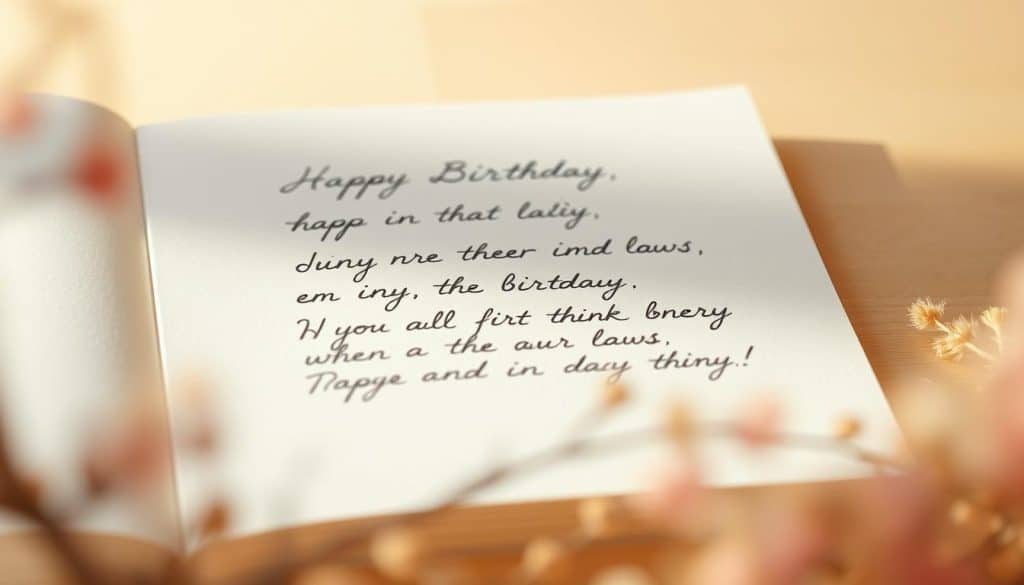 Happy Birthday,
happ in that laliy,
duny nre theer imd laws,
em iny, the birtdauy.
you all firt think bnery
when a the aur laws,
and in dacy thiny.!